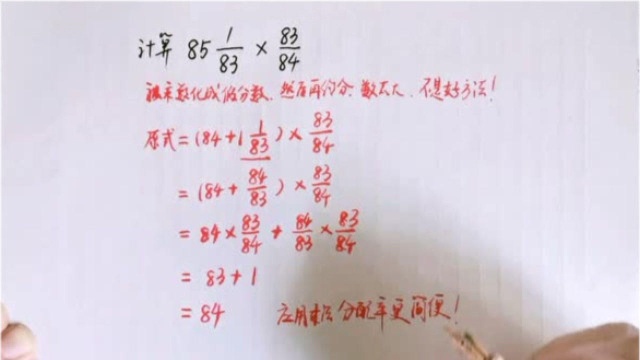 计算 85 1/83 × 83/84
被乘数化成假分数,然后再约分,数太大,不是好方法!
原式=(84+1 1/83)×83/84
=(84+84/83)×83/84
=84×83/84+84/83×83/84
=83+1
=84 应用乘法分配率更简便!